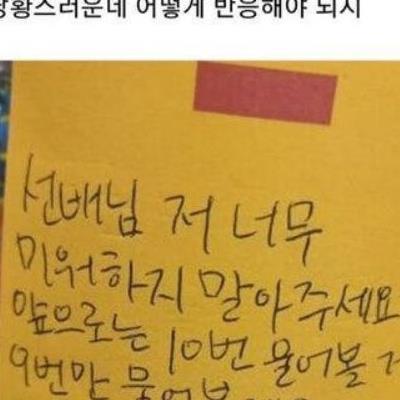 당황스러운데 어떻게 반응해야 되지
선배님 저 너무
미워하지 말아주세요
앞으로는 10번 물어볼 거
9번만